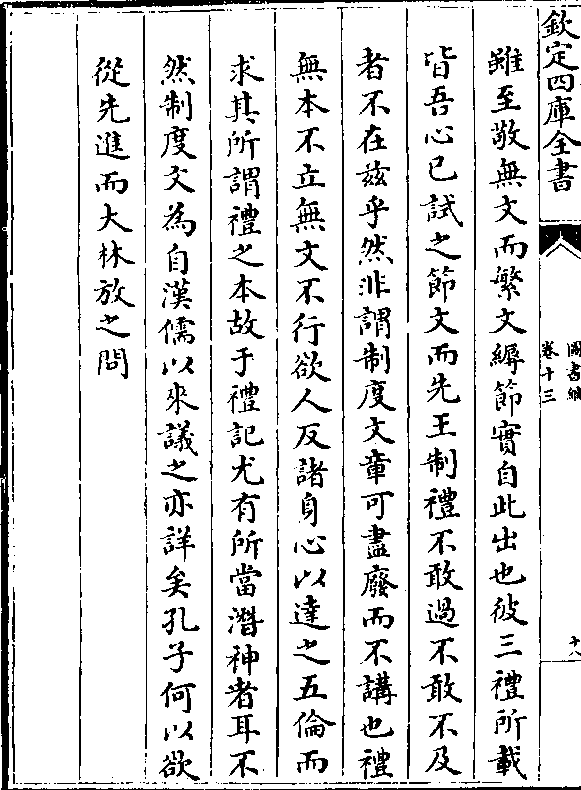 欽定四庫全書
圖書編
卷十三
十八
雖至敬無文而繁文縟節實自此出也彼三禮所載
皆吾心已試之節文而先王制禮不敢過不敢不及
者不在兹乎然非謂制度文章可盡廢而不講也禮
無本不立無文不行欲人反諸身心以達之五倫而
求其所謂禮之本故于禮記尤有所當潛神者耳不
然制度文為自漢儒以來議之亦詳矣孔子何以欲
從先進而大林放之問